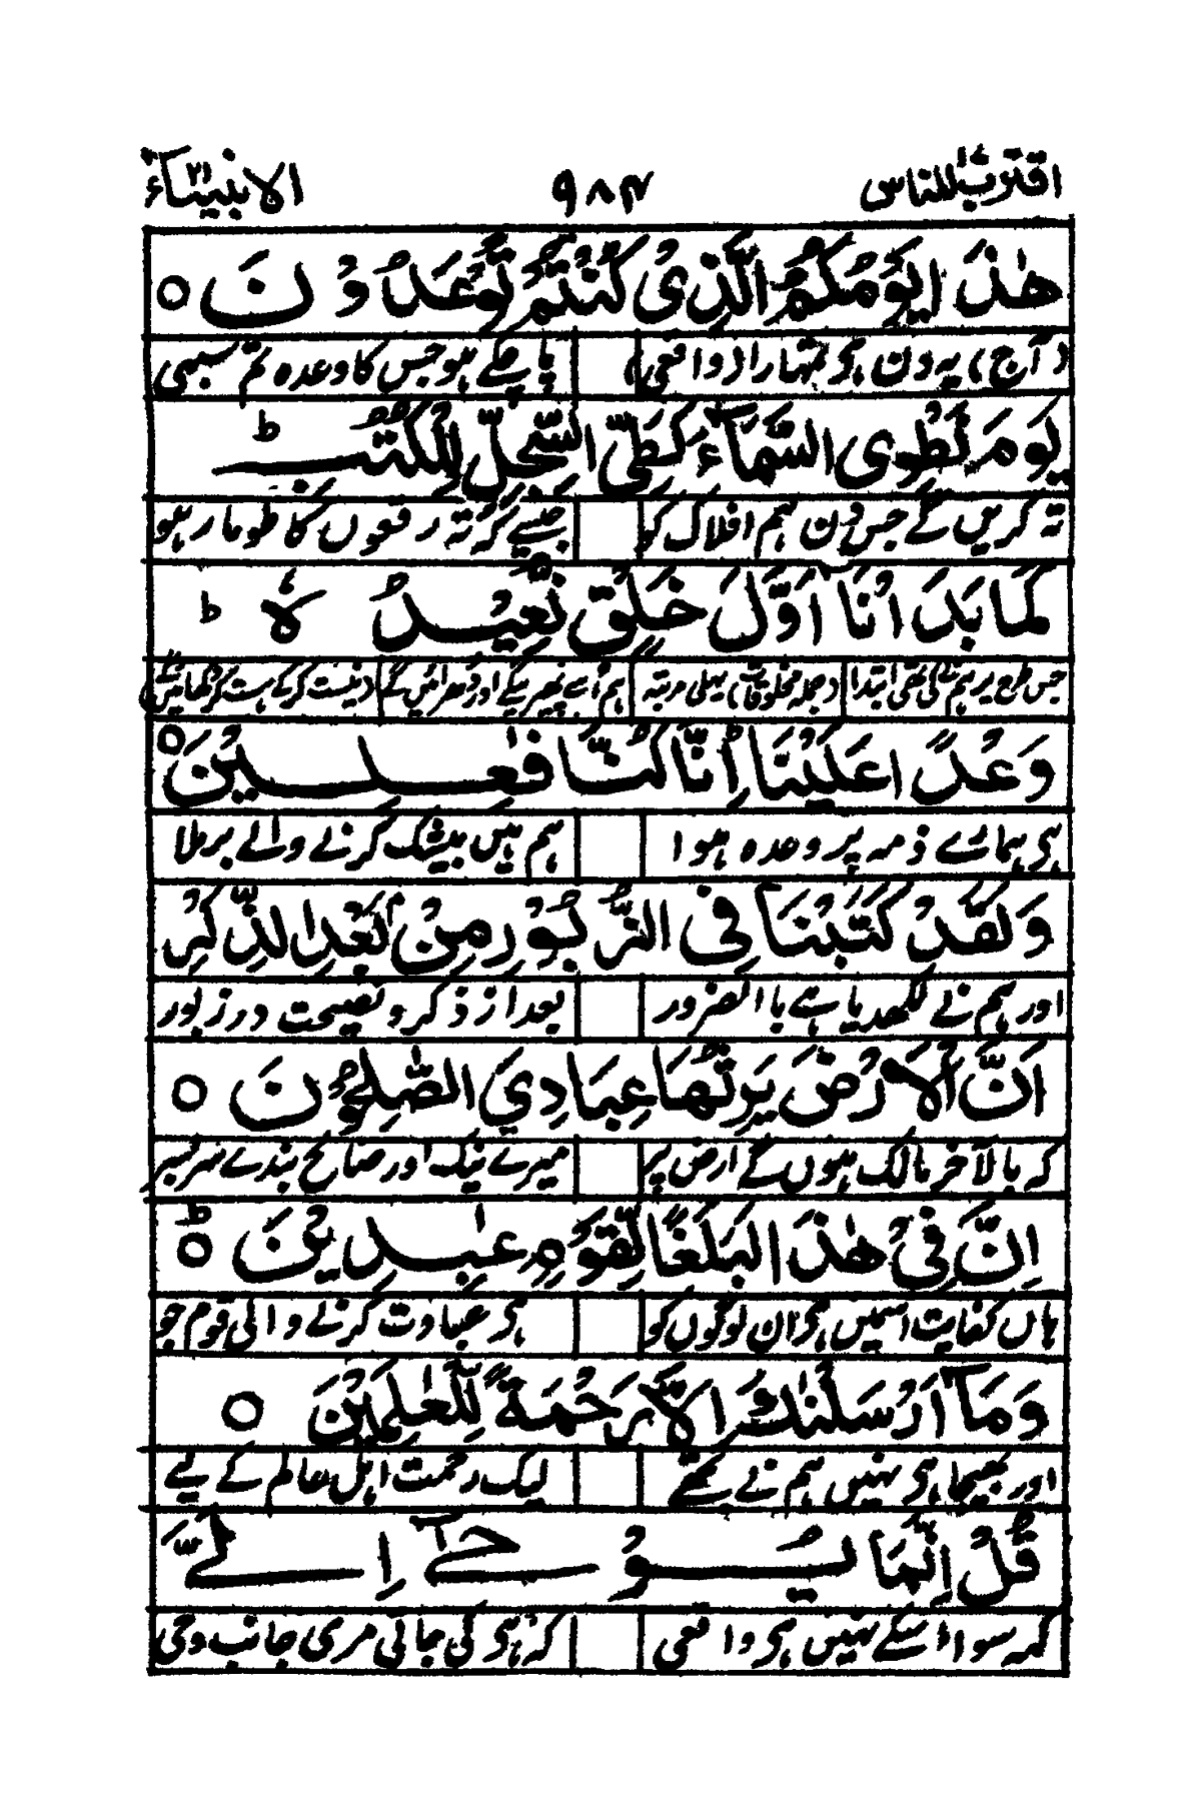 اقترب للناس ۱۷ ۹۸۴ الانبیآء ۲۱
هٰذَا یَوْمُکُمُ الَّذِیْ کُنْتُمْ تُوْعَدُوْنَ ○
(آج) یہ دن ہے تمہارا (واقعی) پا چکے ہو جس کا وعدہ تم سبھی
یَوْمَ نَطْوِی السَّمَآءَ کَطَیِّ السِّجِلِّ لِلْکُتُبِ ط
تہ کریں گے جس دن ہم افلاک کو جیسے کہ تہ رقعوں کا طومار ہو
کَمَا بَدَاْنَآ اَوَّلَ خَلْقٍ نُّعِیْدُہٗ ط
جس طرح پر ہم نے کی تھی ابتدا (جملہ مخلوقات) پہلی مرتبہ ہم اسے پھیر کے اور دھرائیں گے (نیست کر کے ہست کر دکھائیں گے)
وَعْدًا عَلَیْنَا اِنَّا کُنَّا فٰعِلِیْنَ ○
ہے ہمارے ذمہ پر وعدہ ہوا ہم ہیں بیشک کرنے والے برملا
وَلَقَدْ کَتَبْنَا فِی الزَّبُوْرِ مِنْۢ بَعْدِ الذِّکْرِ
اور ہم نے لکھدیا ہے بالضرور بعد از ذکر و نصیحت در زبور
اَنَّ الْاَرْضَ یَرِثُهَا عِبَادِیَ الصّٰلِحُوْنَ ○
کہ بالآخر مالک ہوں گے ارض پر میرے نیک اور صالح بندے سر بسر
اِنَّ فِیْ هٰذَا لَبَلٰغًا لِّقَوْمٍ عٰبِدِیْنَ ○ ط
ہاں کفایت اسمیں ہے ان لوگوں کو ہے عبادت کرنے والی قوم جو
وَمَآ اَرْسَلْنٰکَ اِلَّا رَحْمَةً لِّلْعٰلَمِیْنَ ○
اور بھیجا ہے نہیں ہم نے تجھے لیک رحمت اہل عالم کے لیے
قُلْ اِنَّمَا یُوْحٰٓی اِلَیَّ
کہہ سوا اسکے نہیں ہے واقعی کہ ہے کی جاتی مری جانب وحی